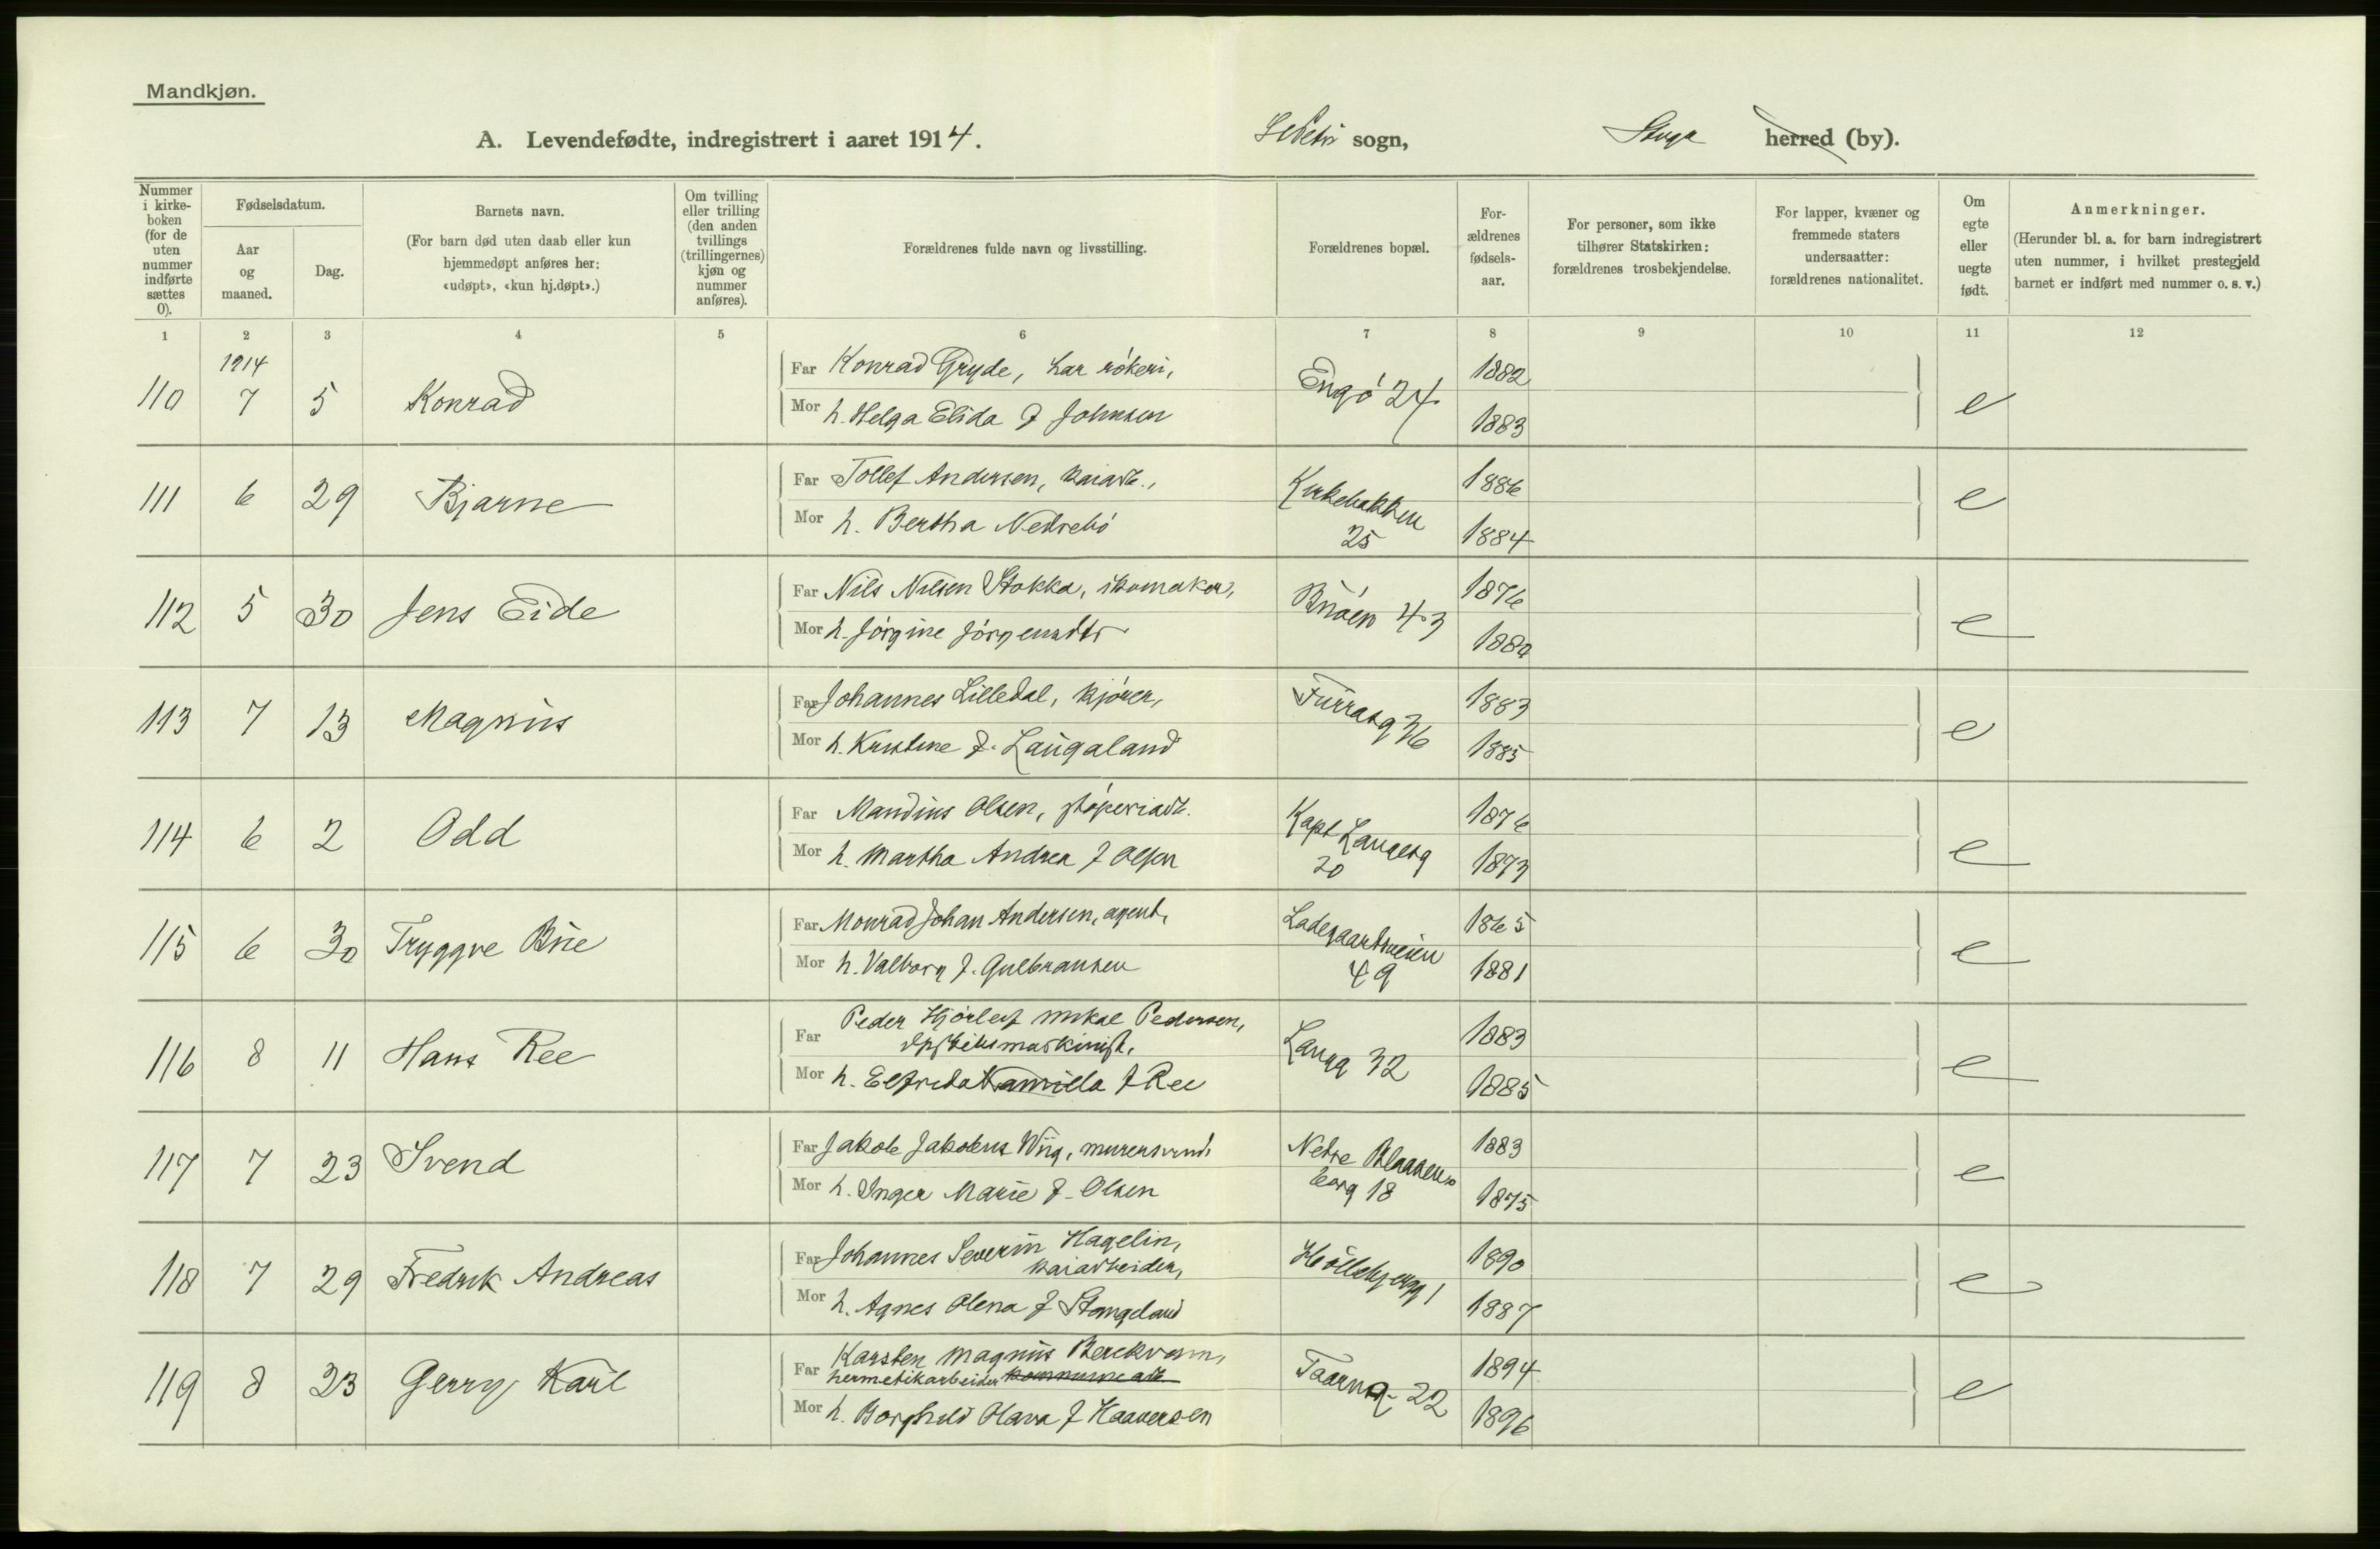 Mandkjøn.
A. Levendefødte, indregistrert i aaret 1914. sogn, herred (by).
Nummer i kirke-boken (for de uten nummer indførte sættes 0).
Fødselsdatum.
Aar og maaned.
Dag.
Barnets navn.
(For barn død uten daab eller kun hjemmedøpt anføres her: «udøpt», «kun hj.døpt».)
Om tvilling eller trilling (den anden tvillings (trillingernes) kjøn og nummer anføres).
Forældrenes fulde navn og livsstilling.
Forældrenes bopæl.
For-ældrenes fødsels-aar.
For personer, som ikke tilhører Statskirken: forældrenes trosbekjendelse.
For lapper, kvæner og fremmede staters undersaatter: forældrenes nationalitet.
Om egte eller uegte født.
Anmerkninger.
(Herunder bl. a. for barn indregistrert uten nummer, i hvilket prestegjeld barnet er indført med nummer o. s. v.)
1 2 3 4 5 6 7 8 9 10 11 12
1914
110 7 5 Konrad
Far Konrad Gryde, har røkeri, Engø 24 1882
Mor h. Helga Elida f Johnsen 1883 e
111 6 29 Bjarne
Far Tollef Andersen, kaiarb., Kirkebakken 25 1886
Mor h. Bertha Nedrebø 1884 e
112 5 30 Jens Eide
Far Nils Nilsen Stokka, skomaker, 43 1876
Mor h. Jørgine Jørgensdtr e
113 7 13 Magnus
Far Johannes Lilledal, kjører, 36 1883
Mor h. Kristine f. Laugaland 1885 e
114 6 2 Odd
Far Mandius Olsen, støperiarb. Kapt Langesg 20 1876
Mor h. Martha Andrea f Olsen 1873 e
115 6 30 Tryggve Brie
Far Monrad Johan Andersen, agent, Ladegaardsveien 49 1865
Mor h. Valborg f. Gulbransen 1881 e
116 8 11 Hans Ree
Far Peder Hjørleif Mikal Pedersen,
dpskibsmaskinist, Langg 32 1883
Mor h. Elfrida Kamilla f Ree 1885 e
117 7 23 Svend
Far Jakob Jakobsen Wiig, murersvend, Nedre Blaasenborg 18 1883
Mor h. Inger Marie f. Olsen 1875 e
118 7 29 Fredrik Andreas
Far Johannes Severin Hagelin,
kaiarbeider, 1 1890
Mor h. Agnes Olena f Stangeland 1887 e
119 8 23 Gerry Karl
Far Karsten Magnus
hermetikarbeider kommunearb Taarng. 22 1894
Mor h. Borghild Olava f Haaversen 1896 e